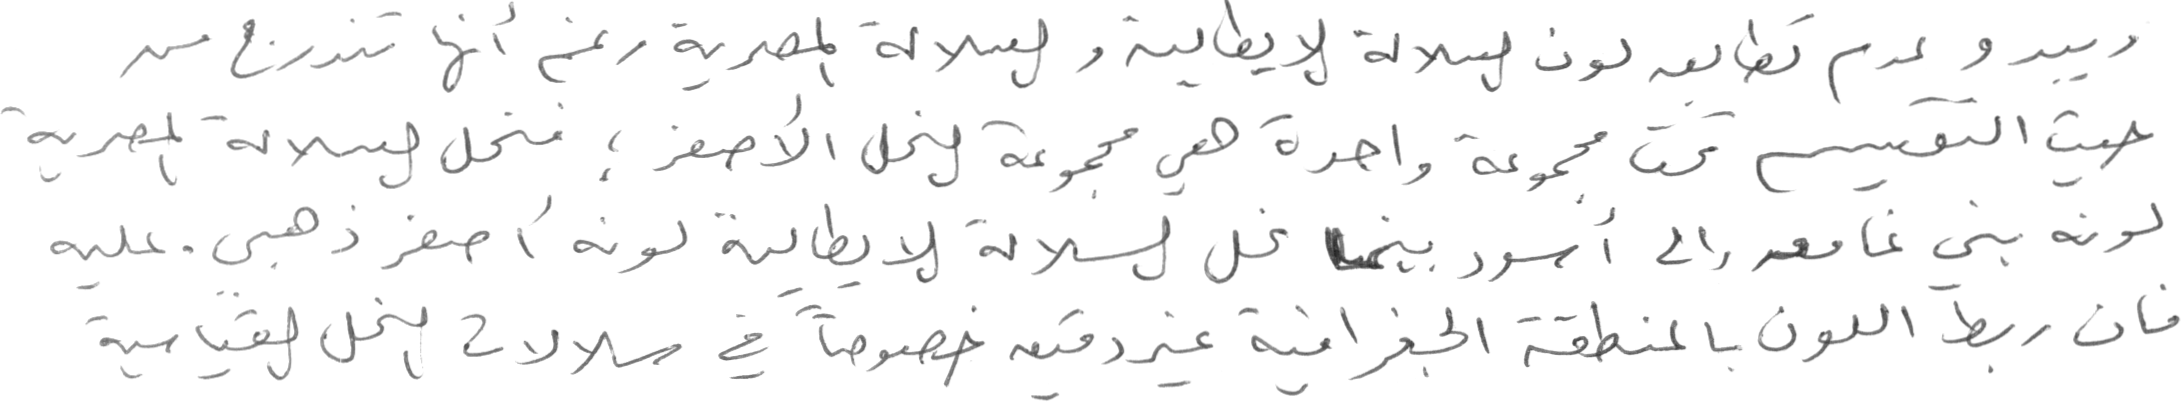 ويبدو عدم تطابق لون السلالة الإيطالية والسلالة المصرية رغم أنها تندرج من
حيث التقسيم تحت مجموعة واحدة هي مجموعة النحل الأصفر؛ فنحل السلالة المصرية
لونه بني غامق إلى أسود بينما نحل السلالة الإيطالية لونه أصفر ذهبي. عليه
فان ربط اللون بالمنطقة الجغرافية غير دقيق خصوصاً في سلالات النحل القياسية